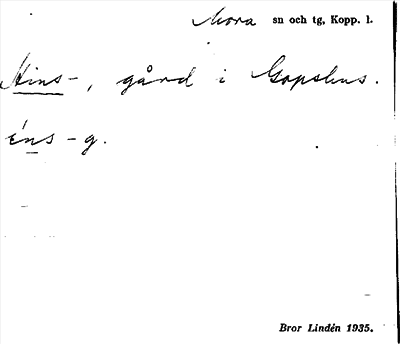 Mora sn och tg, Kopp. l.
Hins-, gård i Gopshus.
éns-g.
Bror Lindén 1935.